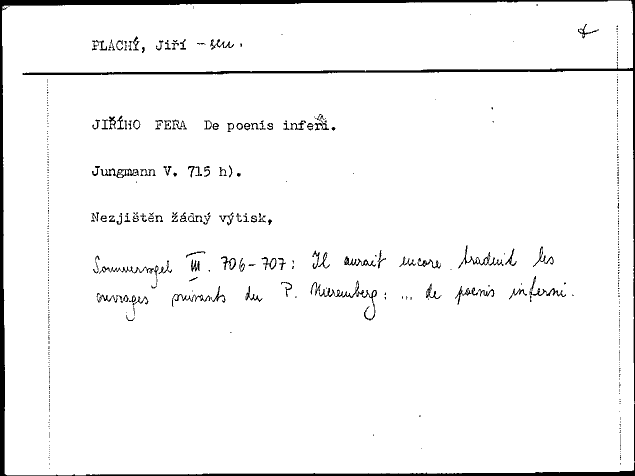 PLACHÝ, Jiří - sen.
JIŘÍHO FERA De poenis inferni.
Jungmann V. 715 h).
Nezjištěn žádný výtisk,
Sommervogel III. 706-707: Il aurait encore traduit les
ouvrages suivants du P. Nieremberg: ... de poenis inferni.